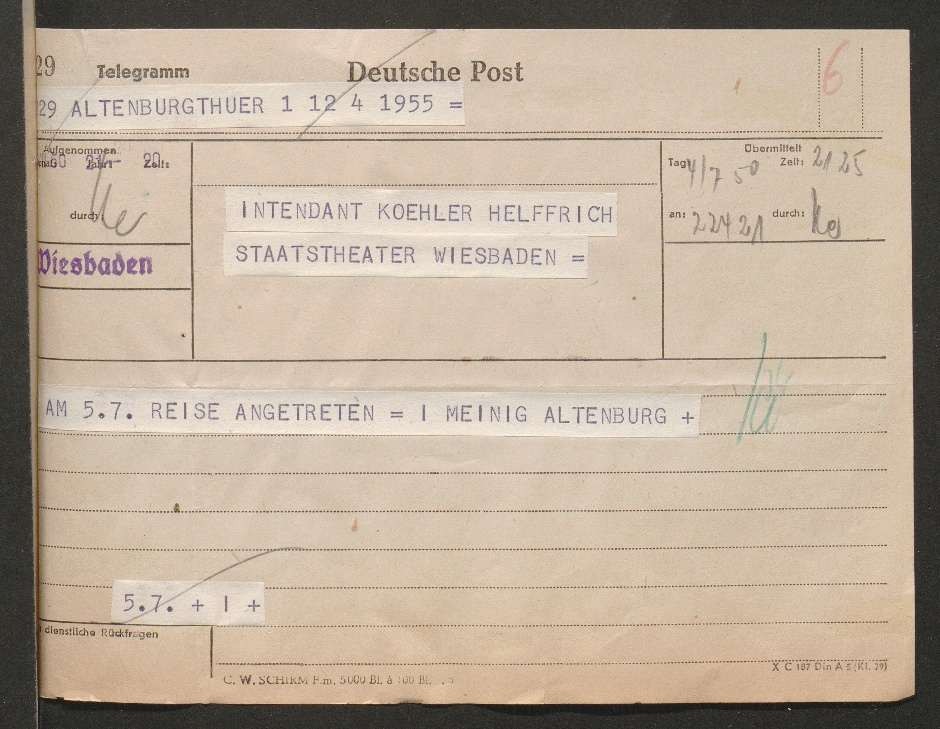 29 Telegramm Deutsche Post 6
29 ALTENBURGTHUER 1 12 4 1955 =
Aufgenommen
Zeit:
durch:
Wiesbaden
INTENDANT KOEHLER HELFFRICH
STAATSTHEATER WIESBADEN =
Übermittelt
Tag: 4/7 50 Zeit: 21 25
an: 22421 durch:
AM 5.7. REISE ANGETRETEN = I MEINIG ALTENBURG +
5.7. + I +
dienstliche Rückfragen
C. W. SCHIRM F.m, 5000 Bl. à 100 Bl.
X C 187 Din A 5 (Kl. 29)